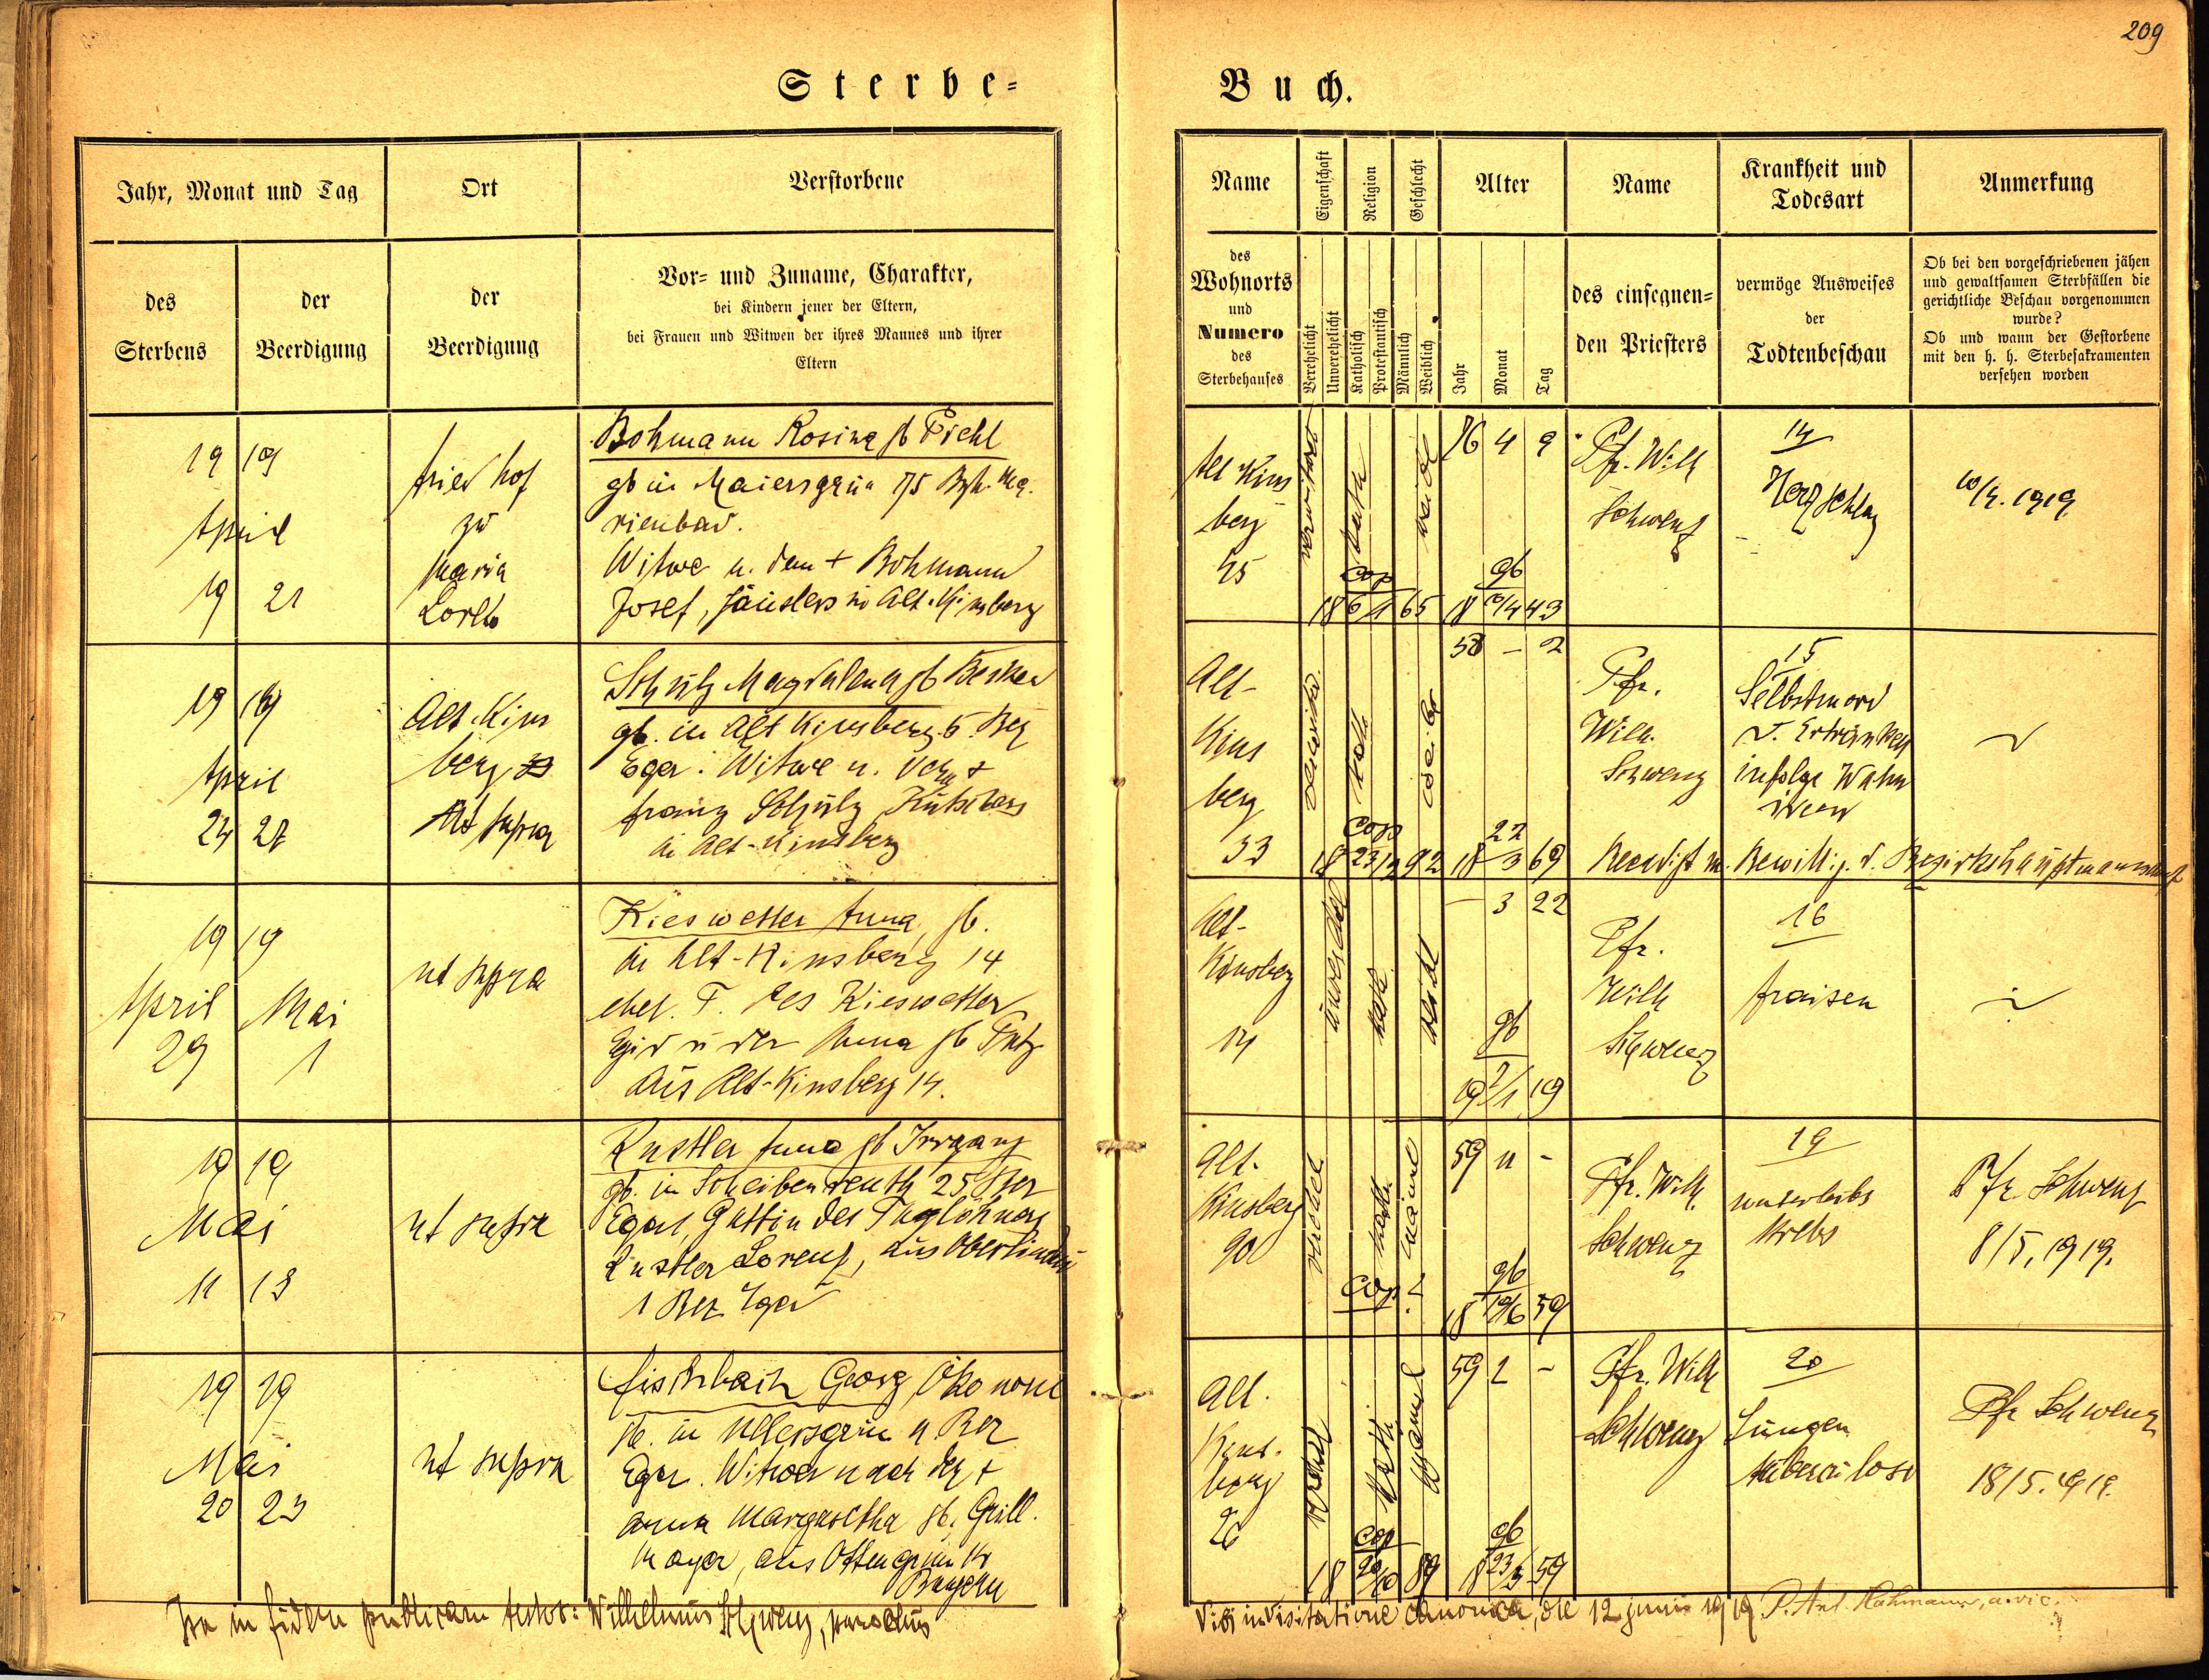 209
Sterbe-
Buch.
Jahr, Monat und Tag
Ort
Verstorbene
des
Sterbens
der
Beerdigung
der
Beerdigung
Vor- und Zuname, Charakter,
bei Kindern jener der Eltern,
bei Frauen und Witwen der ihres Mannes und ihrer
Eltern
Name
Eigenschaft
Religion
Geschlecht
Alter
Name
Krankheit und
Todesart
Anmerkung
des
Wohnorts
und
Numero
des
Sterbehauses
Verehelicht
Unverehelicht
Katholisch
Protestantisch
Männlich
Weiblich
Jahr
Monat
Tag
des einsegnen-
den Priesters
vermöge Ausweises
der
Todtenbeschau
Ob bei den vorgeschriebenen jähen
und gewaltsamen Sterbfällen die
gerichtliche Beschau vorgenommen
wurde?
Ob und wann der Gestorbene
mit den h. h. Sterbesakramenten
versehen worden
19 19
April
19 21
Friedhof
zu
Maria
Loreto
Bohmann Rosina gb
gb in Maiersgrün 75 Bzh. Ma-
rienbad.
Witwe n. dem + Bohmann
Josef, Häuslers in Alt-Kinsberg
Alt Kins
berg
verwitwet
kath
weibl
76 4 9
cop
18 6/1 65
gb
18 10/4 43
Pfr. Wilh
Schwenz
14
Herzschlag
10/4. 1919
19 19
April
24 27
Alt-Kins
berg
ut supra
Schulz Magdalena gb
gb. in Alt Kinsberg 6 Bez
Eger. Witwe n. dem +
Franz Schulz
in Alt-Kinsberg
Alt-
Kins
berg
33
kath.
50 - 2
cop
18 23/12 92
22
18 3 69
Pfr.
Wilh.
Schwenz
15
Selbstmord
d. Ertränken
infolge Wahn
sinn
Beerdigt m. Bewillig. d. Bezirkshauptmannschaft
19 19
April Mai
29 1
ut supra
Kieswetter Anna, gb.
in Alt-Kinsberg 14
ehel. T. des Kieswetter
Egid u der Anna gb
aus Alt-Kinsberg 14.
Alt-
Kinsberg
14
kath.
weibl
- 3 22
gb
19 7/1 19
Pfr.
Wilh
Schwenz
16
Fraisen
19 19
Mai
11 13
ut supra
Rustler Anna gb Irrgang
gb. in Scheibenreuth 25 Bez
Eger, Gattin des Taglöhners
Rustler Lorenz, aus Oberlindau
1 Bez Eger
Alt-
Kinsberg
90
kath
59 11 -
cop ?
gb
18 10/6 59
Pfr. Wilh.
Schwenz
19
Unterleibs
krebs
Pfr Schwenz
8/5. 1919.
19 19
Mai
20 23
ut supra
Fischbach Georg, Ökonom
gb. in Ullersgrün 4 Bez
Eger. Witwer nach der +
Anna Margaretha gb. Grill-
mayer, aus Ottengrün
Bayern
Alt-
Kins-
berg
26
Kath.
Männl
59 1 -
cop
18 89
gb
18 23/3 59
Pfr. Wilh
Schwenz
20
Lungen
tuberculose
Pfr Schwenz
18/5. 1919.
Ita in fidem publicam testor: Wilhelmus Schwenz, parochus
Vidi in visitatione canonica, die 12 junii 1919 P. Ant. Hahmann, a. vic.